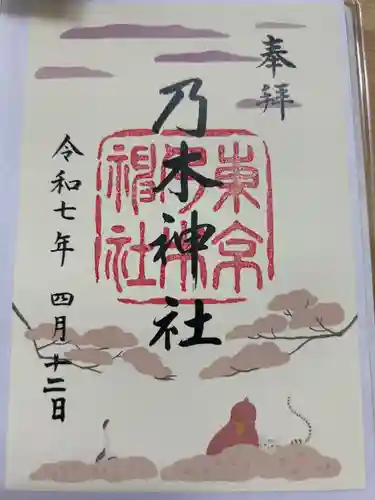 奉拝
乃木神社
東京
乃木
神社
令和七年 四月十二日